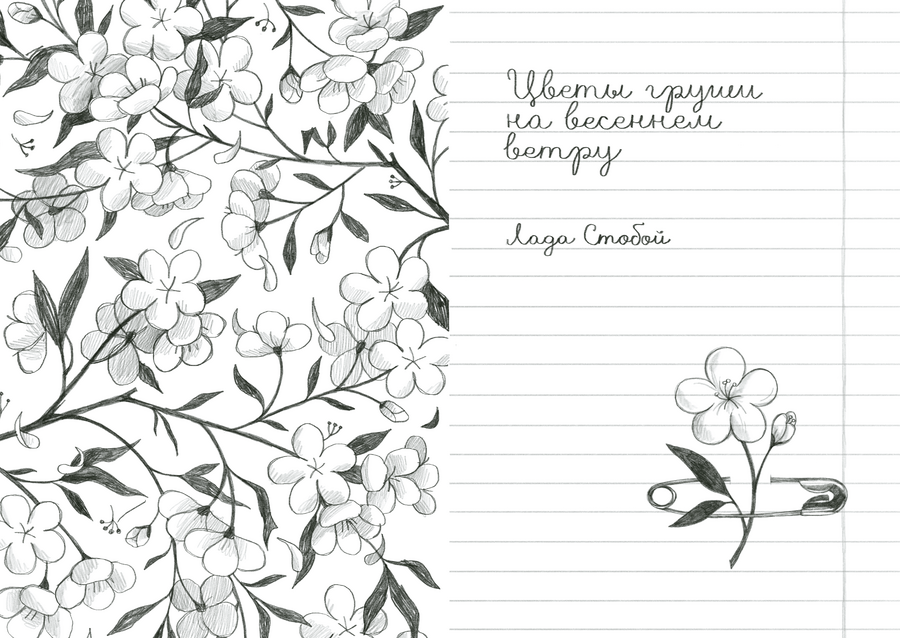 Цветы груши
на весеннем
ветру
Лада Стобой